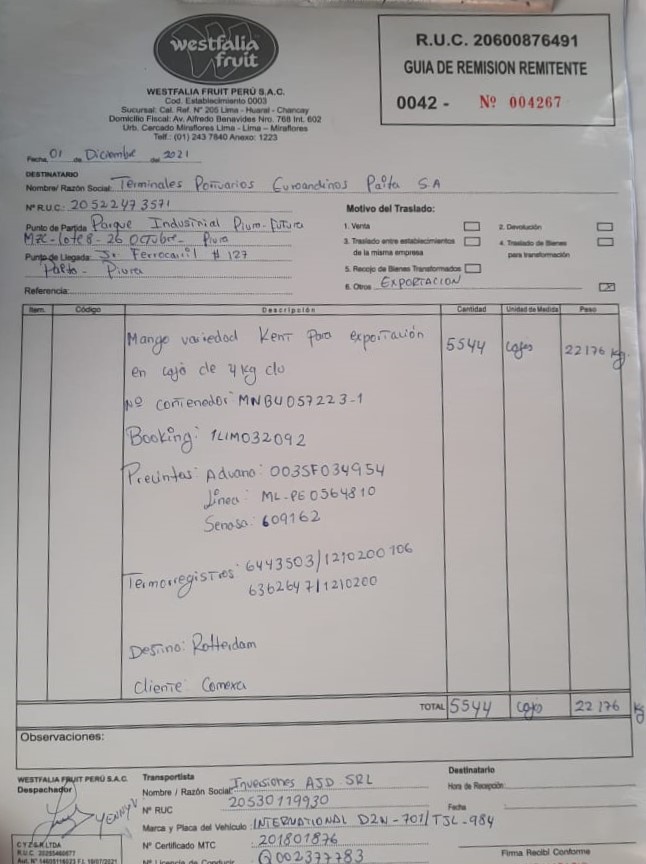 westfalia
fruit
WESTFALIA FRUIT PERÚ S.A.C.
Cod. Establecimiento 0003
Sucursal: Cal. Ref. Nº 205 Lima - Huaral - Chancay
Domicilio Fiscal: Av. Alfredo Benavides Nro. 768 Int. 602
Urb. Cercado Miraflores Lima - Lima - Miraflores
Telf.: (01) 243 7840 Anexo: 1223
R.U.C. 20600876491
GUIA DE REMISION REMITENTE
0042 - Nº 004267
Fecha, 01 de Diciembre del 2021
DESTINATARIO
Nombre/ Razón Social: Terminales Portuarios Euroandinos Paita S.A
Nº R.U.C.: 20522473571
Punto de Partida Parque Industrial Piura-Futura
MzC-Lote 8 - 26 Octubre - Piura
Punto de Llegada: Jr. Ferrocarril # 127
Paita - Piura
Referencia:
Motivo del Traslado:
1. Venta
2. Devolución
3. Traslado entre establecimientos de la misma empresa
4. Traslado de Bienes para transformación
5. Recojo de Bienes Transformados
6. Otros EXPORTACION
Item. Código Descripción Cantidad Unidad de Medida Peso
Mango variedad Kent para exportación 5544 cajas 22176 kg.
en caja de 4 kg c/u
Nº contenedor: MNBU057223-1
Booking: 1LIM032092
Precintos: Aduana: 003SF034954
Línea: ML-PE0564810
Senasa: 609162
Termorregistros: 6443503/1210200106
6362647/1210200
Destino: Rotterdam
Cliente: Comexa
TOTAL 5544 caja 22176 kg
Observaciones:
WESTFALIA FRUIT PERÚ S.A.C.
Despachador
YENNY V
Transportista
Nombre / Razón Social: Inversiones AJD SRL
Nº RUC 20530119930
Marca y Placa del Vehículo: INTERNATIONAL D2N-701/TJL-984
Nº Certificado MTC 201801876
Nº Licencia de Conducir Q002377783
Destinatario
Hora de Recepción:
Fecha
Firma Recibí Conforme